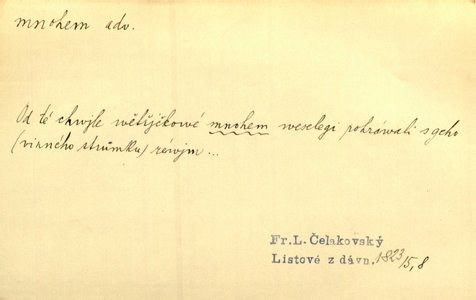 mnohem adv.
Od té chwjle wětřjčkowé mnohem weselegi pohráwali s geho
(virného strůmku) réwjm ...
Fr. L. Čelakovský
Listové z dávn. 1823 15,8